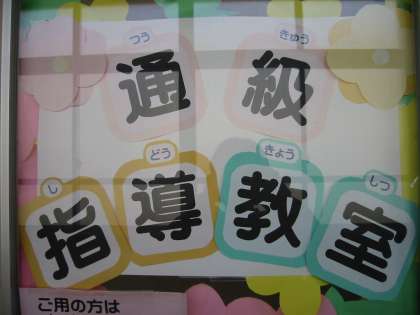 つう きゅう
通級
し どう きょう しつ
指導教室
ご用の方は